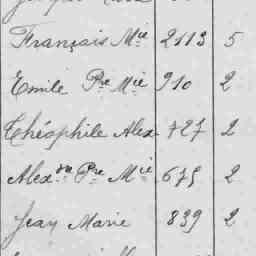 François Mie 2113 5
Emile Pre Mie 910 2
Théophile Alex. 727 2
Alex.dre Pre Mie 675 2
Jean Marie 839 2